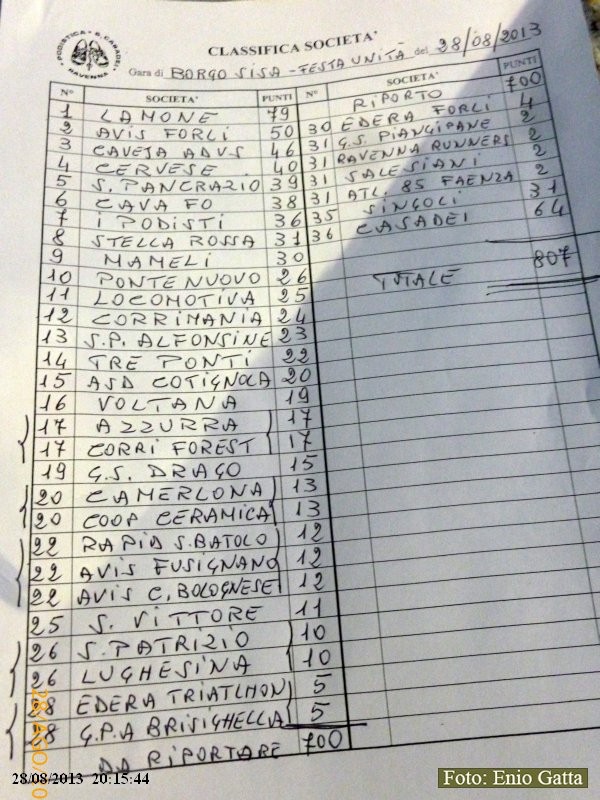 PODISTICA - S. CASADEI
RAVENNA
CLASSIFICA SOCIETA'
Gara di BORGO SISA - FESTA UNITÀ del 28/08/2013
N° SOCIETA' PUNTI
1 LAMONE 79
2 AVIS FORLI 50
3 CAVEJA ADVS 46
4 CERVESE 40
5 S. PANCRAZIO 39
6 CAVA FO 38
7 I PODISTI 36
8 STELLA ROSSA 31
9 MAMELI 30
10 PONTE NUOVO 26
11 LOCOMOTIVA 25
12 CORRIMANIA 24
13 S.P. ALFONSINE 23
14 TRE PONTI 22
15 ASD COTIGNOLA 20
16 VOLTANA 19
17 AZZURRA 17
17 CORRI FOREST 17
19 G.S. DRAGO 15
20 CAMERLONA 13
20 COOP CERAMICA 13
22 RAPID S. BATOLO 12
22 AVIS FUSIGNANO 12
22 AVIS C. BOLOGNESE 12
25 S. VITTORE 11
26 S. PATRIZIO 10
26 LUGHESINA 10
28 EDERA TRIATLHON 5
28 G.P.A BRISIGHELLA 5
DA RIPORTARE 700
N° SOCIETA' PUNTI
RIPORTO 700
30 EDERA FORLI 4
31 G.S. PIANGIPANE 2
31 RAVENNA RUNNERS 2
31 SALESIANI 2
31 ATL. 85 FAENZA 2
35 SINGOLI 31
36 CASADEI 64
TOTALE 807
28/08/2013 20:15:44
Foto: Enio Gatta